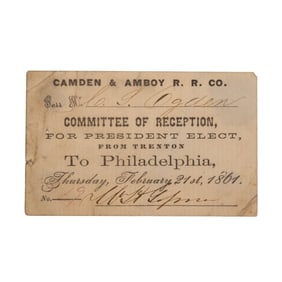 CAMDEN & AMBOY R. R. CO.
Pass Mr. C. S. Ogden
COMMITTEE OF RECEPTION,
FOR PRESIDENT ELECT,
FROM TRENTON
To Philadelphia,
Thursday, February 21st, 1861.
No.